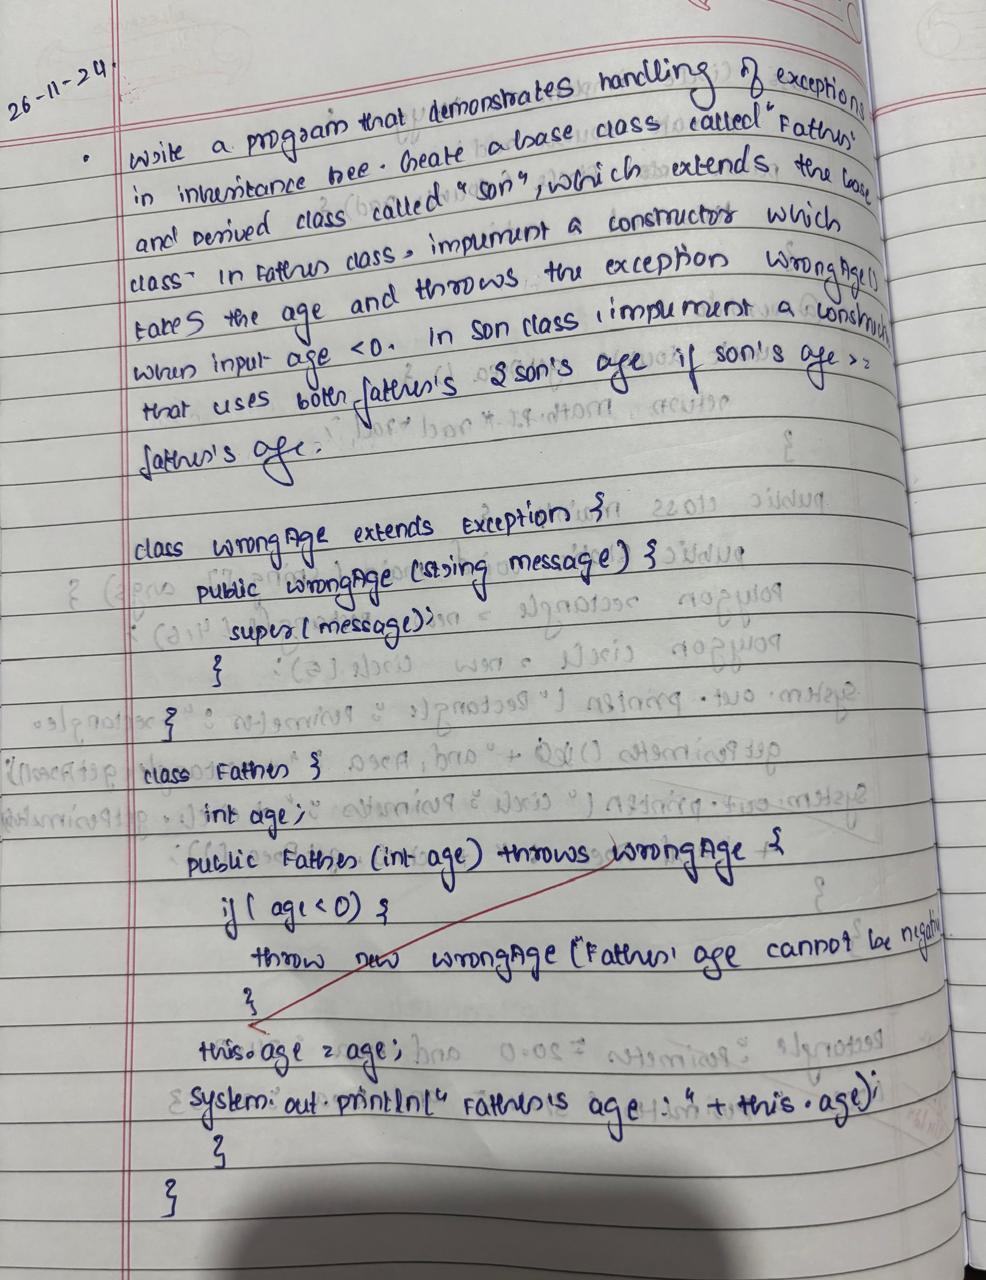 26-11-24.
• Write a program that demonstrates handling of exceptions
in inheritance tree. Create a base class called "Father"
and Derived class called "son", which extends the base
class- in Father class, implement a constructor which
takes the age and throws the exception WrongAge()
when input age <0. In son class, implement a construct
that uses both father's & son's age if son's age >=
father's age.
class WrongAge extends Exception {
public WrongAge (String message) {
super(message);
}
}
class Father {
int age;
public Father (int age) throws WrongAge {
if ( age<0) {
throw new WrongAge ("Father' age cannot be negative
}
this.age = age;
System.out.println(" Father's age : " + this.age);
}
}